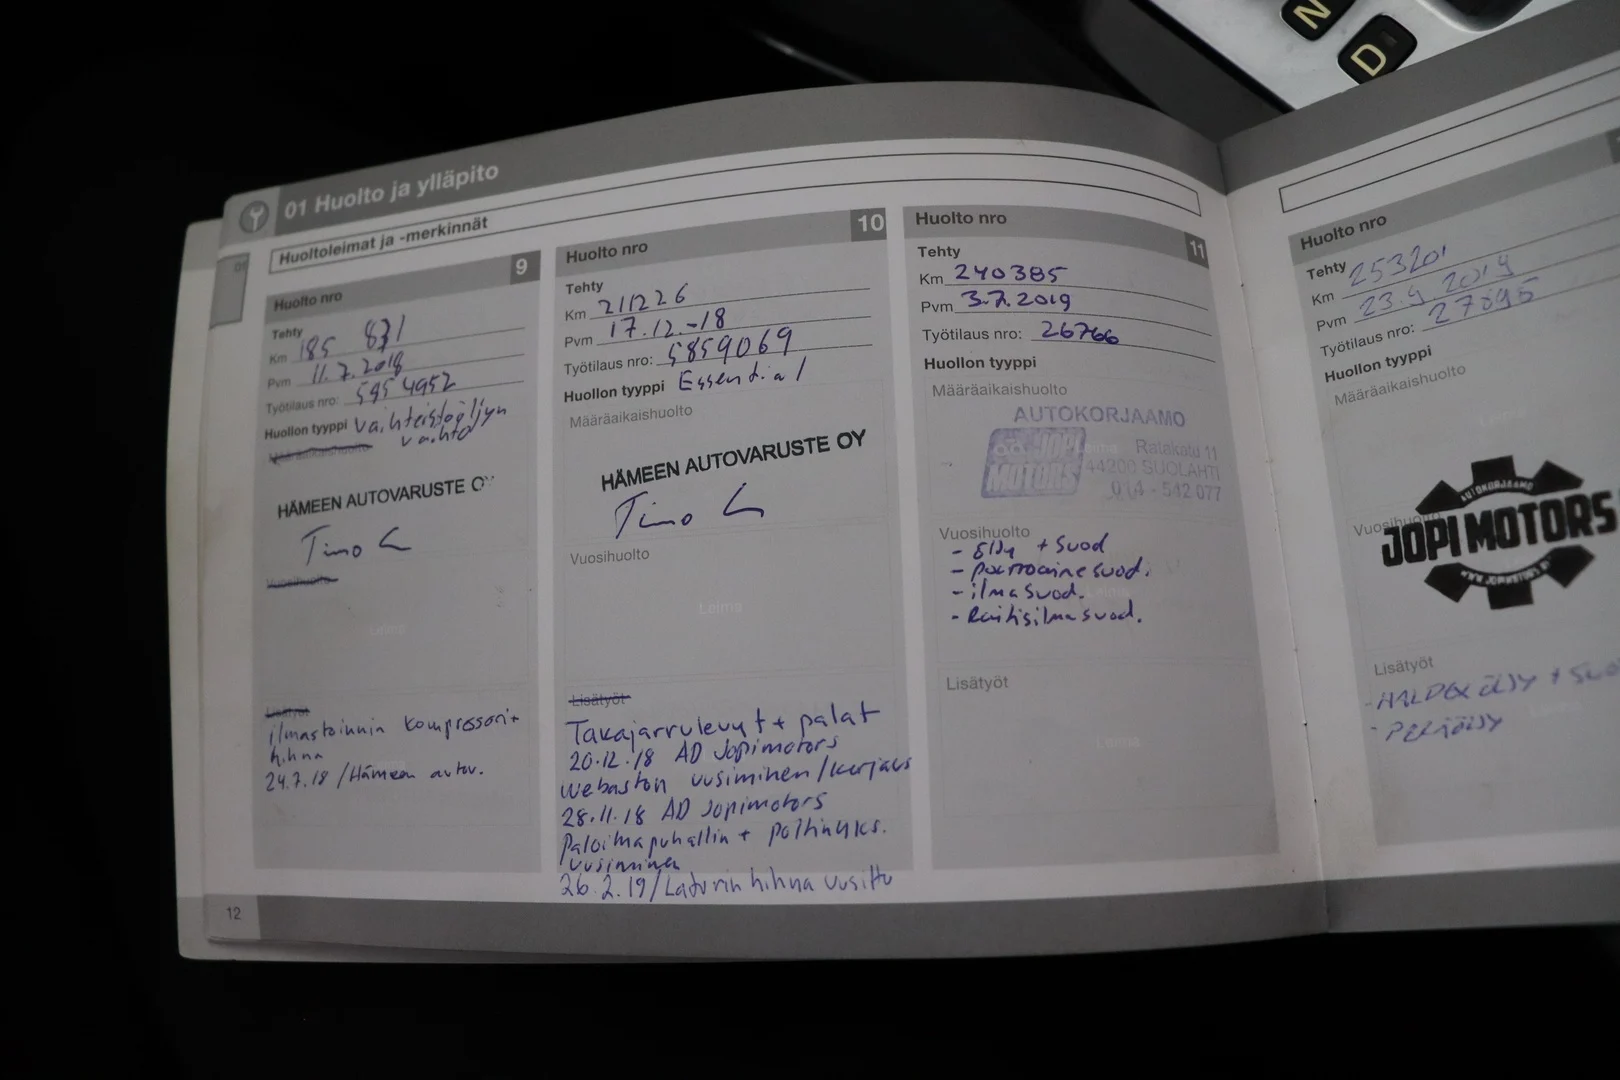 N
D
01 Huolto ja ylläpito
Huoltoleimat ja -merkinnät
Huolto nro 9
Tehty
Km 185 871
Pvm 11.7.2018
Työtilaus nro: 5954952
Huollon tyyppi Vaihteistoöljyn
vaihto
Määräaikaishuolto
HÄMEEN AUTOVARUSTE OY
Timo
Vuosihuolto
Leima
Lisätyöt
ilmastoinnin kompressori+
hihna
24.7.18 / Hämeen autov.
12
Huolto nro 10
Tehty
Km 211226
Pvm 17.12.-18
Työtilaus nro: 5859069
Huollon tyyppi Essential
Määräaikaishuolto
HÄMEEN AUTOVARUSTE OY
Timo
Vuosihuolto
Leima
Lisätyöt
Takajarrulevyt + palat
20.12.18 AD Jopimotors
Webaston uusiminen/korjaus
28.11.18 AD Jopimotors
Paloilmapuhallin +
uusiminen
26.2.19/Laturin hihna uusittu
Huolto nro 11
Tehty
Km 240385
Pvm 3.7.2019
Työtilaus nro: 26766
Huollon tyyppi
Määräaikaishuolto
AUTOKORJAAMO
JOPI
MOTORS
Ratakatu 11
44200 SUOLAHTI
014 - 542 077
Vuosihuolto
- öljy + suod
- polttoainesuod.
- ilmasuod.
- Raitisilmasuod.
Lisätyöt
Leima
Huolto nro
Tehty
Km 253201
Pvm 23.9 2019
Työtilaus nro: 27895
Huollon tyyppi
Määräaikaishuolto
Leima
Vuosihuolto
AUTOKORJAAMO
JOPI MOTORS
Lisätyöt
- HALDEX ÖLJY +
- PERÄÖLJY